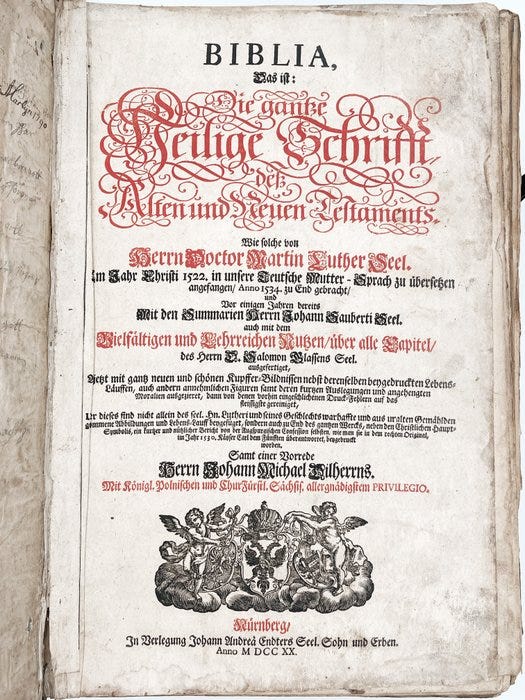 BIBLIA,
Das ist:
Die gantze
Heilige Schrifft,
deß
Alten und Neuen Testaments.
Wie solche von
Herrn Doctor Martin Luther Seel.
Im Jahr Christi 1522. in unsere Teutsche Mutter-Sprach zu übersetzen
angefangen/ Anno 1534. zu End gebracht/
und
Vor einigen Jahren bereits
Mit den Summarien Herrn Johann Sauberti Seel.
auch mit dem
Vielfältigen und Lehrreichen Nutzen/ über alle Capitel/
des Herrn D. Salomon Glassens Seel.
ausgefertiget,
Anjetzt mit gantz neuen und schönen Kupffer-Bildnissen nebst derenselben beygedruckten Lebens-
Läuffen, auch andern annehmlichen Figuren samt deren kurtzen Auslegungen und angehengten
Moralien ausgezieret, dann von denen vorhin eingeschlichenen Druck-Fehlern auf das
fleissigste gereiniget,
Ur dieses sind nicht allein des seel. Hn. Lutheri und seines Geschlechts warhaffte und aus uralten Gemählden
genommene Abbildungen und Lebens-Lauff beygefüget, sondern auch zu End des gantzen Wercks, neben den Christlichen Haupt-
Symbolis, ein kurtzer und nützlicher Bericht von der Augspurgischen Confession selbsten, wie man sie in dem rechten Original,
im Jahr 1530. Käyser Carl dem Fünfften überantwortet, beygedruckt
worden.
Samt einer Vorrede
Herrn Johann Michael Dilherrns.
Mit Königl. Polnischen und ChurFürstl. Sächsis. allergnädigstem PRIVILEGIO.
Nürnberg/
In Verlegung Johann Andreä Endters Seel. Sohn und Erben.
Anno M DCC XX.